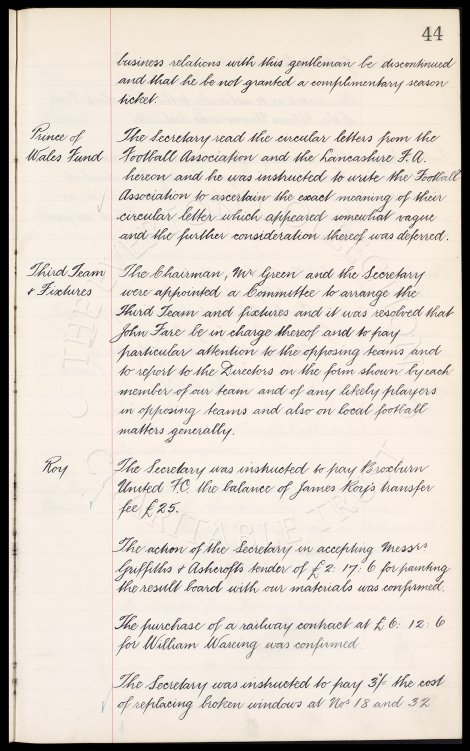 44
business relations with this gentleman be discontinued
and that he be not granted a complimentary season
ticket.
Prince of
Wales Fund
The Secretary read the circular letters from the
Football Association and the Lancashire F.A.
hereon and he was instructed to write the Football
Association to ascertain the exact meaning of their
circular letter which appeared somewhat vague
and the further consideration thereof was deferred.
Third Team
& Fixtures
The Chairman, Mr Green and the Secretary
were appointed a Committee to arrange the
Third Team and fixtures and it was resolved that
John Fare be in charge thereof and to pay
particular attention to the opposing teams and
to report to the Directors on the form shown by each
member of our team and of any likely players
in opposing teams and also on local football
matters generally.
Roy
The Secretary was instructed to pay Broxburn
United F.C. the balance of James Roy's transfer
fee £25.
The action of the Secretary in accepting Messrs
Griffiths & Ashcrofts tender of £2: 17: 6 for painting
the result board with our materials was confirmed.
The purchase of a railway contract at £6: 12: 6
for William Wareing was confirmed.
The Secretary was instructed to pay 3/- the cost
of replacing broken windows at Nos 18 and 32